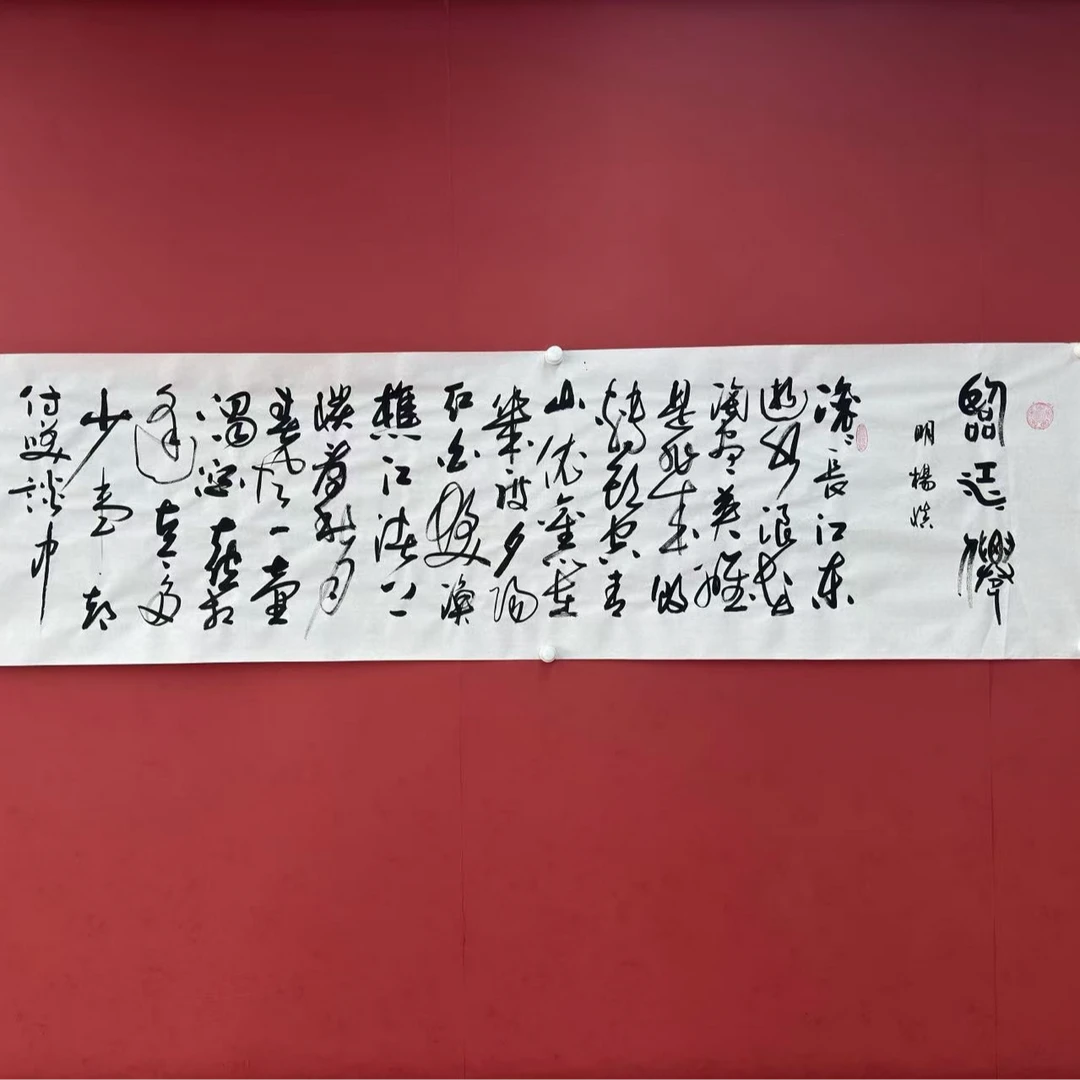 臨江僊
明楊慎
滾滾長江東
逝水浪花
淘盡英雄
是非成敗
轉頭空青
山依舊在
幾度夕陽
紅白髮漁
樵江渚上
慣看秋月
春風一壺
濁酒喜相
逢古今多
少事都
付笑談中